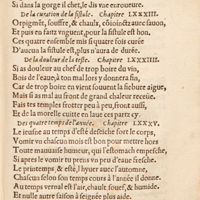 Si dans la gorge il chet, le dis vue enroueure.
De la curation de la fistule. Chapitre LXXXIII.
Orpigmēt, souffre, & chaulx, & ioindz auec sauon,
Et puis en faitz vnguent, pour la fistule est bon.
Ces quatre ensemble mis si quatre fois curée
D'aucun la fistule est, plus n'aura de durée.
De la douleur de la teste. Chapitre LXXXIIII.
Si as douleur au chef de trop boire du vin,
Bois de l'eaue, à ton mal lors y donnera fin,
Car de trop boire en vient souuent la fiebure aigue,
Mais si as mal au front de grand chaleur receüe,
Fais tes temples frotter peu à peu, front aussi,
Et de la morelle cuitte en laue ces partz cy.
Des quatre temps de l'année. Chapitre LXXXV.
Le ieusne au temps d'esté desseiche fort le corps,
Vomir vn chascun mois est bon pour mettre hors
Toute mauuaise humeur, qui l'estomach empesche,
Si apres le vomir tu prens vn peu d'eaue fresche.
Le printemps & esté, l'hyuer auec l'automne,
Chascun selon son temps cours à l'année il donne.
Au temps vernal est l'air, chault, souef, & humide.
Et nulle autre saison à seignée plus aide.